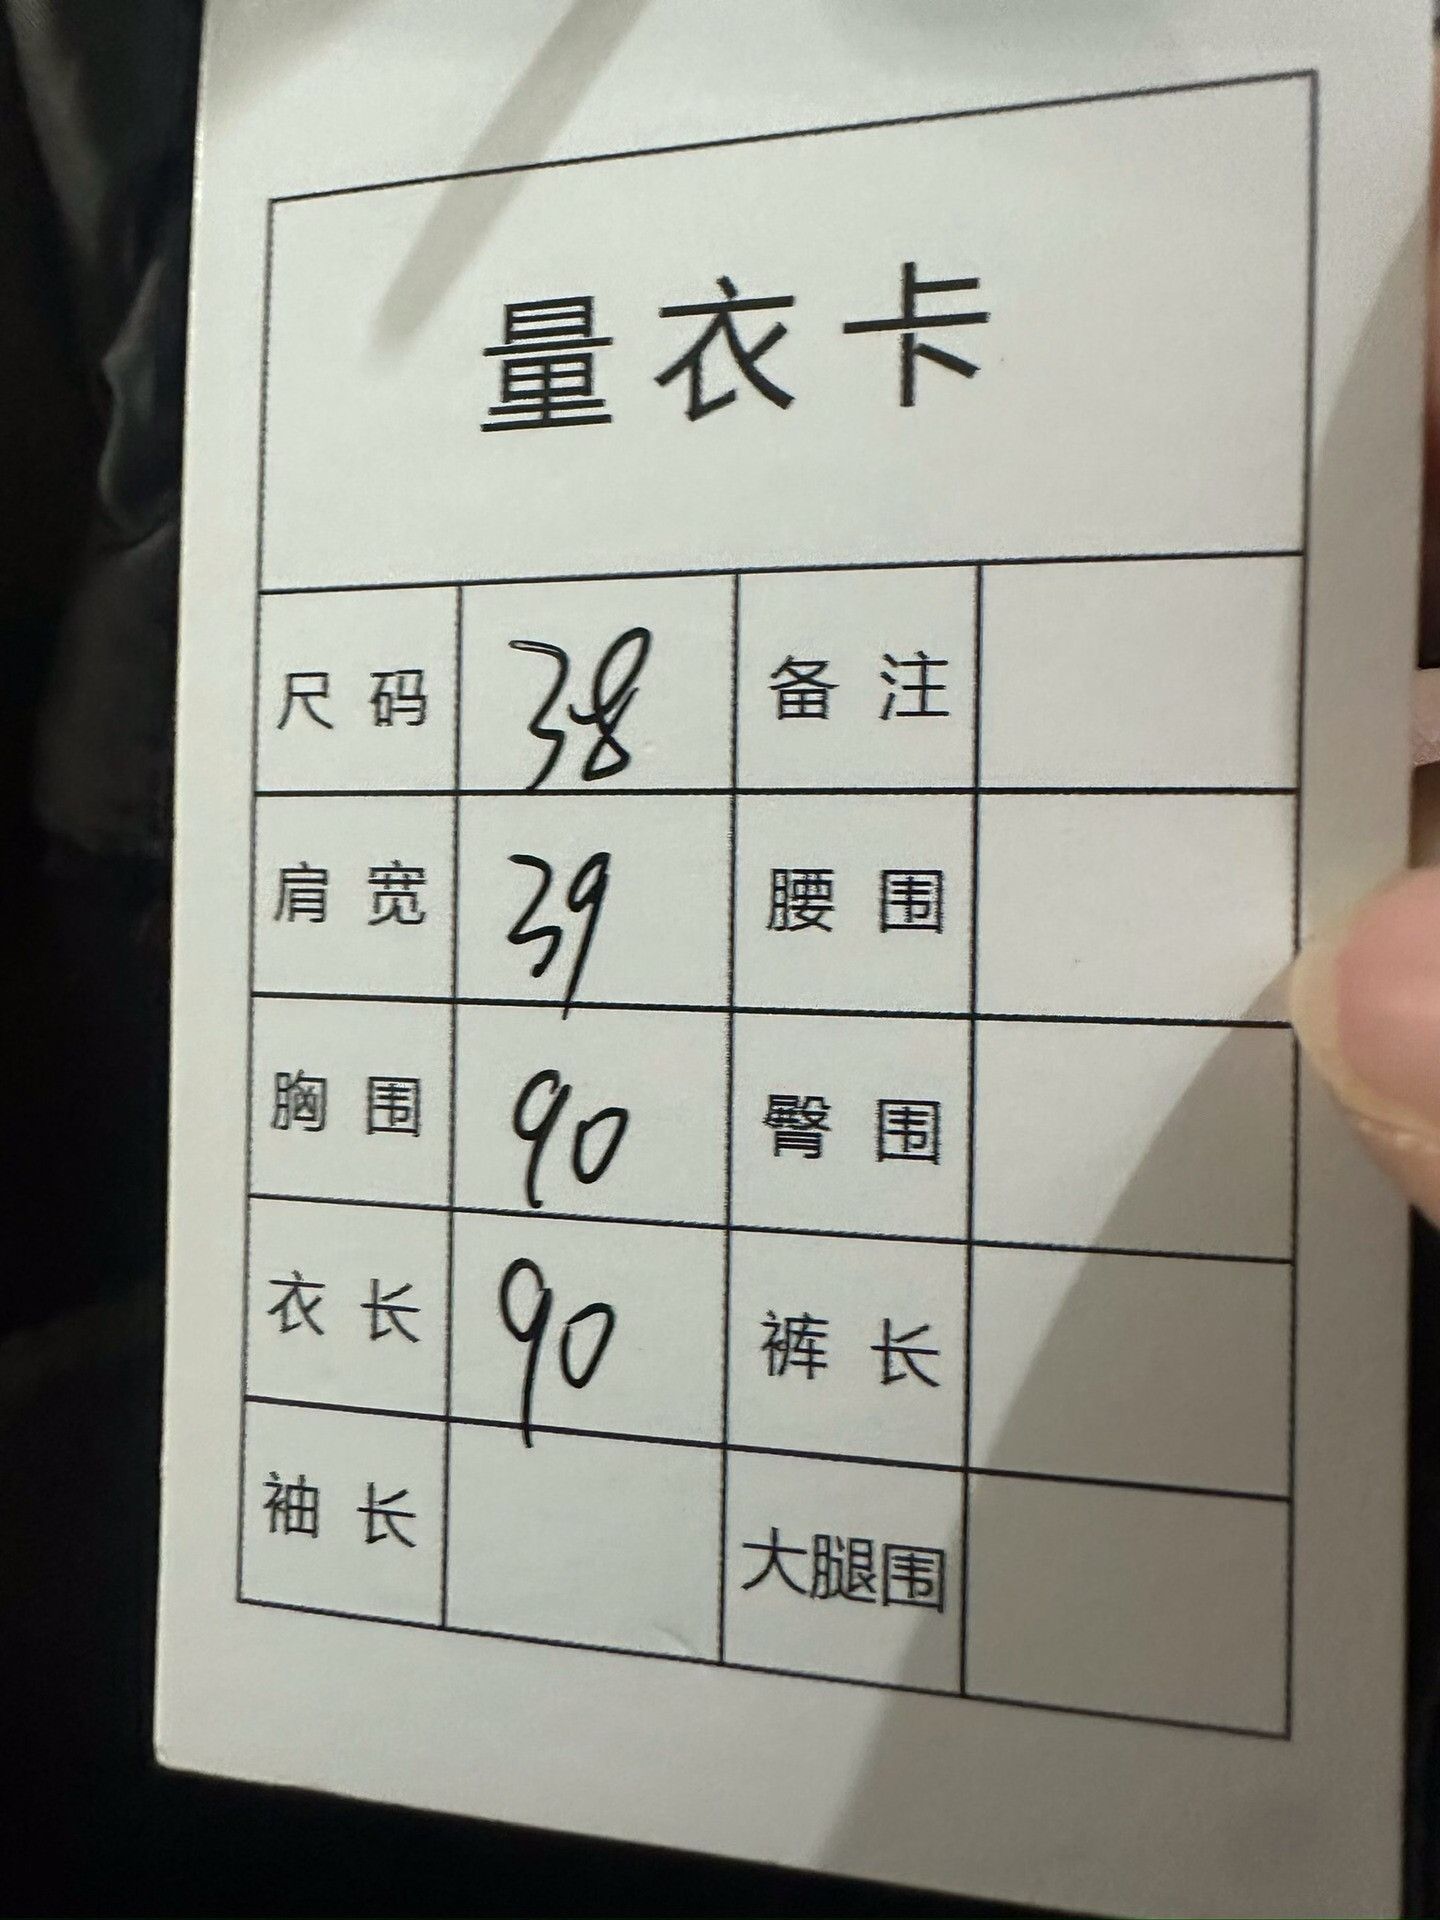 量衣卡
尺码 38 备注
肩宽 39 腰围
胸围 90 臀围
衣长 90 裤长
袖长 大腿围